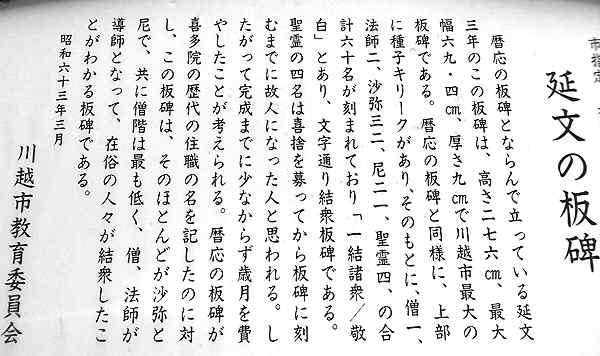 市指定
延文の板碑
暦応の板碑とならんで立っている延文
三年のこの板碑は、高さ二七六㎝、最大
幅六九・四㎝、厚さ九㎝で川越市最大の
板碑である。暦応の板碑と同様に、上部
に種子キリークがあり、そのもとに、僧一、
法師二、沙弥三二、尼二一、聖霊四、の合
計六十名が刻まれており「一結諸衆／敬
白」とあり、文字通り結衆板碑である。
聖霊の四名は喜捨を募ってから板碑に刻
むまでに故人になった人と思われる。し
たがって完成までに少なからず歳月を費
やしたことが考えられる。暦応の板碑が
喜多院の歴代の住職の名を記したのに対
し、この板碑は、そのほとんどが沙弥と
尼で、共に僧階は最も低く、僧、法師が
導師となって、在俗の人々が結衆したこ
とがわかる板碑である。
昭和六十三年三月
川越市教育委員会